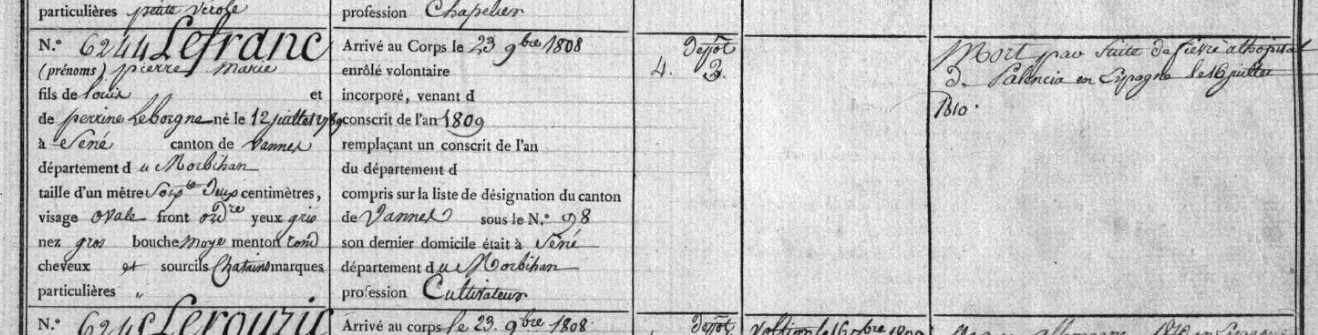 particulières petite verole
profession Chapelier
N.° 6244 Lefranc
(prénoms) pierre Marie
fils de louis et
de perrine Leborgne né le 12 juillet 1789
à Séné canton de Vannes
département du Morbihan
taille d'un mètre Soixte Deux centimètres,
visage ovale front ordre yeux gris
nez gros bouche Moye menton rond
cheveux et sourcils Chatains marques
particulières "
Arrivé au Corps le 23 9bre 1808
enrôlé volontaire
incorporé, venant d
conscrit de l'an 1809
remplaçant un conscrit de l'an
du département d
compris sur la liste de désignation du canton
de Vannes sous le N.° 98
son dernier domicile était à Séné
département du Morbihan
profession Cultivateur
Depôt
4. 3.
Mort par suite de fievre à l'hopital
d Palencia en Espagne le 16 juillet
1810.
N.° Lerouzic
Arrivé au corps le 23. 9bre 1808.
Depôt